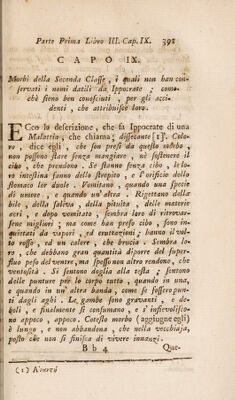 Parte Prima Libro III. Cap. IX. 391
CAPO IX.
Morbi della Seconda Classe, i quali non han con-
servati i nomi datili da Ippocrate ; come-
chè sieno ben conosciuti, per gli acci-
denti, che attribuisce loro.
ECco la descrizione, che fa Ippocrate di una
Malattia, che chiama, dissecante (1). Colo-
ro, dice egli, che son presi da questo morbo,
non possono stare senza mangiare, nè sostenere il
cibo, che prendono. Se stanno senza cibo, le lo-
ro intestina fanno dello strepito, e l'orificio dello
stomaco lor duole. Vomitano, quando una specie
di umore, e quando un'altra. Rigettano della
bile, della saliva, della pituita, delle materie
acri, e dopo vomitato, sembra loro di ritrovar-
sene migliori ; ma come han preso cibo, sono in-
quietati da vapori, ed eruttazioni, hanno il vol-
to rosso, ed un calore, che brucia. Sembra lo-
ro, che debbano gran quantità diporre del super-
fluo peso del ventre, ma spesso non altro rendono, che
ventosità. Si sentono doglia alla testa ; sentono
delle punture per lo corpo tutto, quando in una,
e quando in un'altra banda, come se fossero pun-
ti dagli aghi. Le gambe sono gravanti, e de-
boli, e finalmente si consumano, e s'infievolisco-
no appoco, appoco. Cotesto morbo (aggiugne egli)
è lungo, e non abbandona, che nella vecchiaja,
posto che non si finisca di vivere innanzi.
B b 4 Que-
(1)